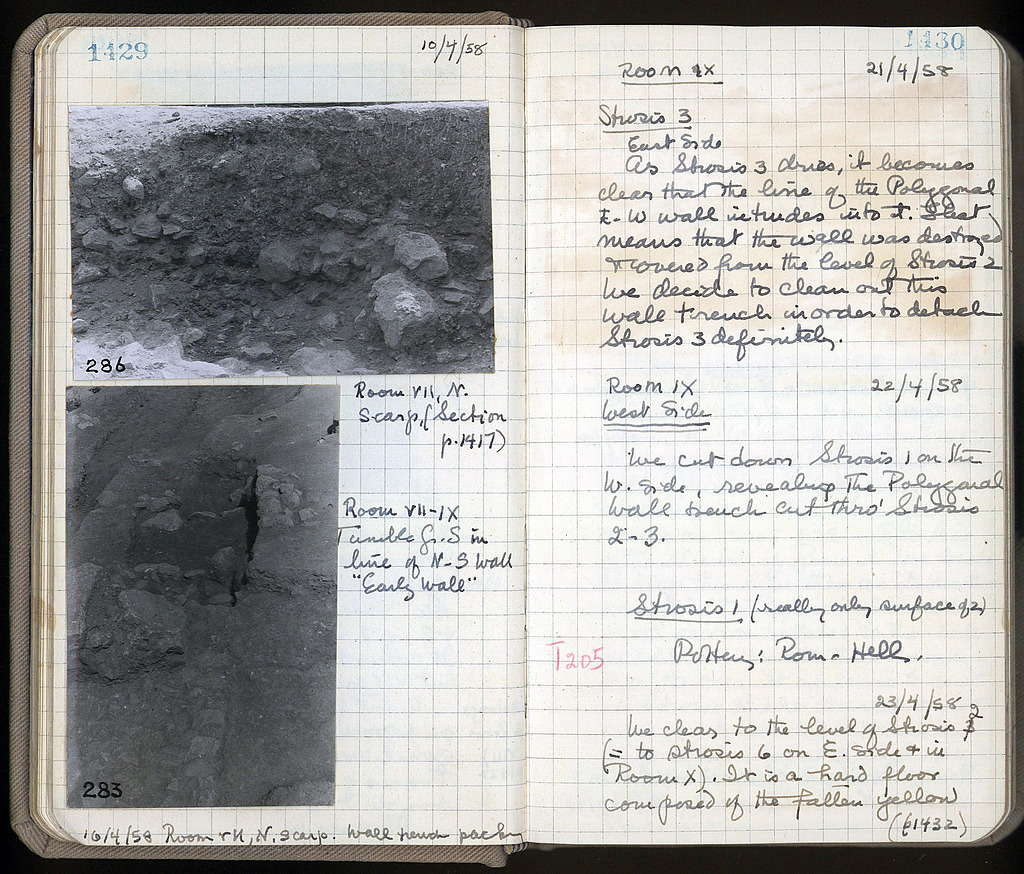 1429
10/4/58
286
Room VII, N.
Scarp, (Section
p. 1417)
Room VII-IX
Tumble Gr. S in
line of N-S wall
"Early Wall"
283
10/4/58 Room VII, N. Scarp. Wall trench packing
1430
Room IX 21/4/58
Strosis 3
East Side
As Strosis 3 dries, it becomes
clear that the line of the Polygonal
E-W wall intrudes into it. That
means that the wall was destroyed
& covered from the level of Strosis 2
We decide to clean out this
wall trench in order to detach
Strosis 3 definitely.
Room IX 22/4/58
West Side
We cut down Strosis 1 on the
W. side, revealing the Polygonal
wall trench cut thro' Strosis
2-3.
Strosis 1 (really only surface of 2)
T205 Pottery: Rom-Hell.
23/4/58
We clear to the level of Strosis 2
(= to strosis 6 on E. Side & in
Room X). It is a hard floor
composed of the fallen yellow
(p1432)